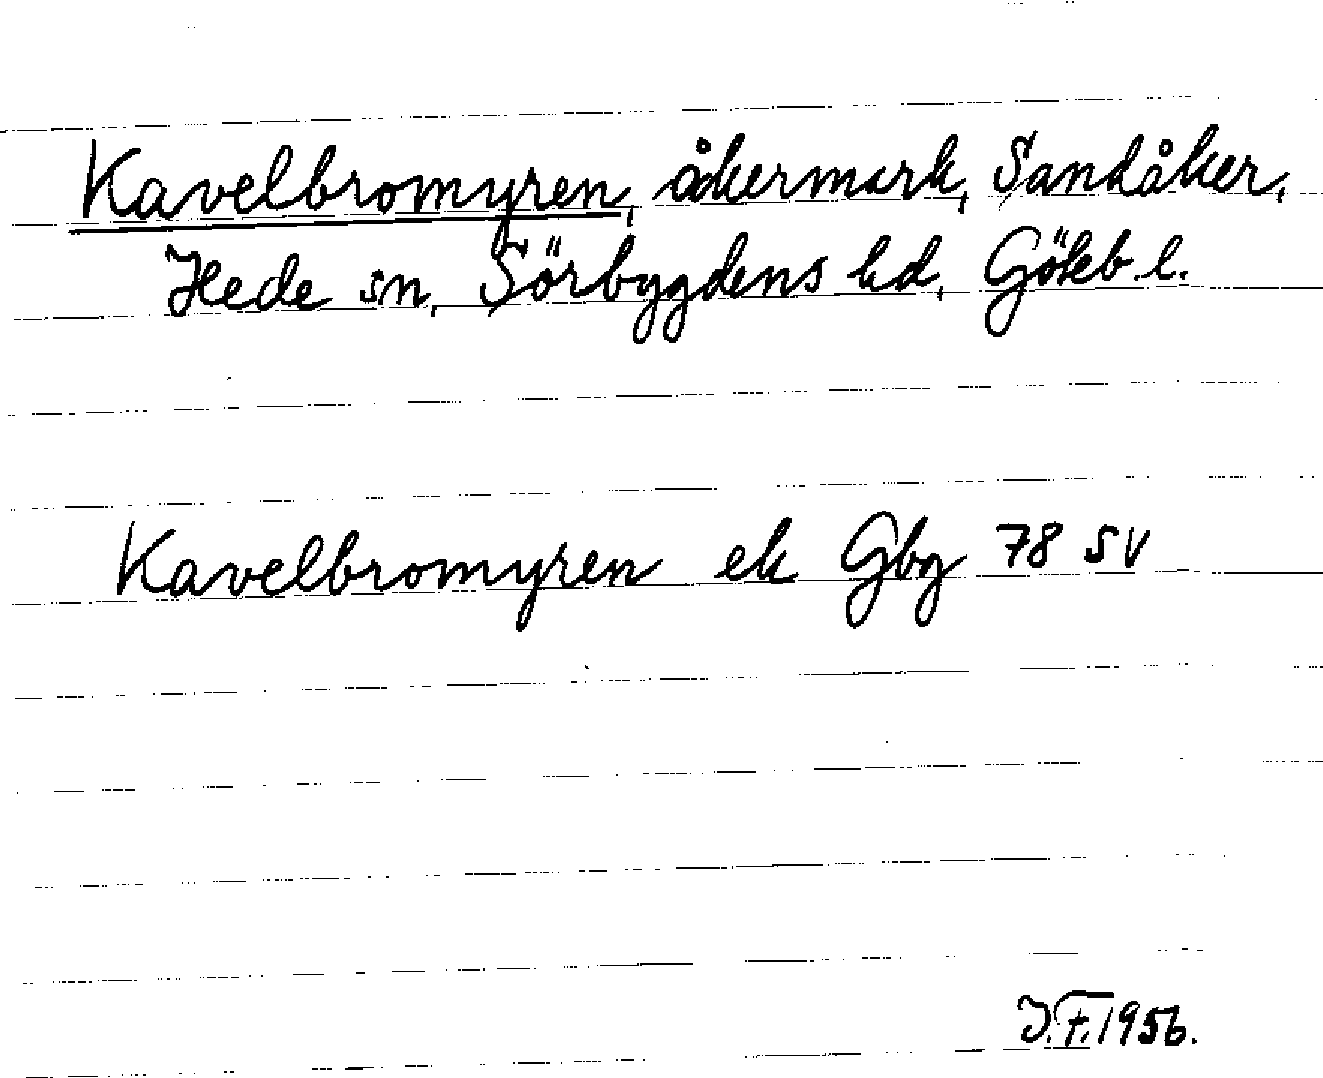 Kavelbromyren, åkermark, Sandåker,
Hede sn, Sörbygdens hd, Göteb. l.
Kavelbromyren ek Gbg 78 SV
J.F. 1956.